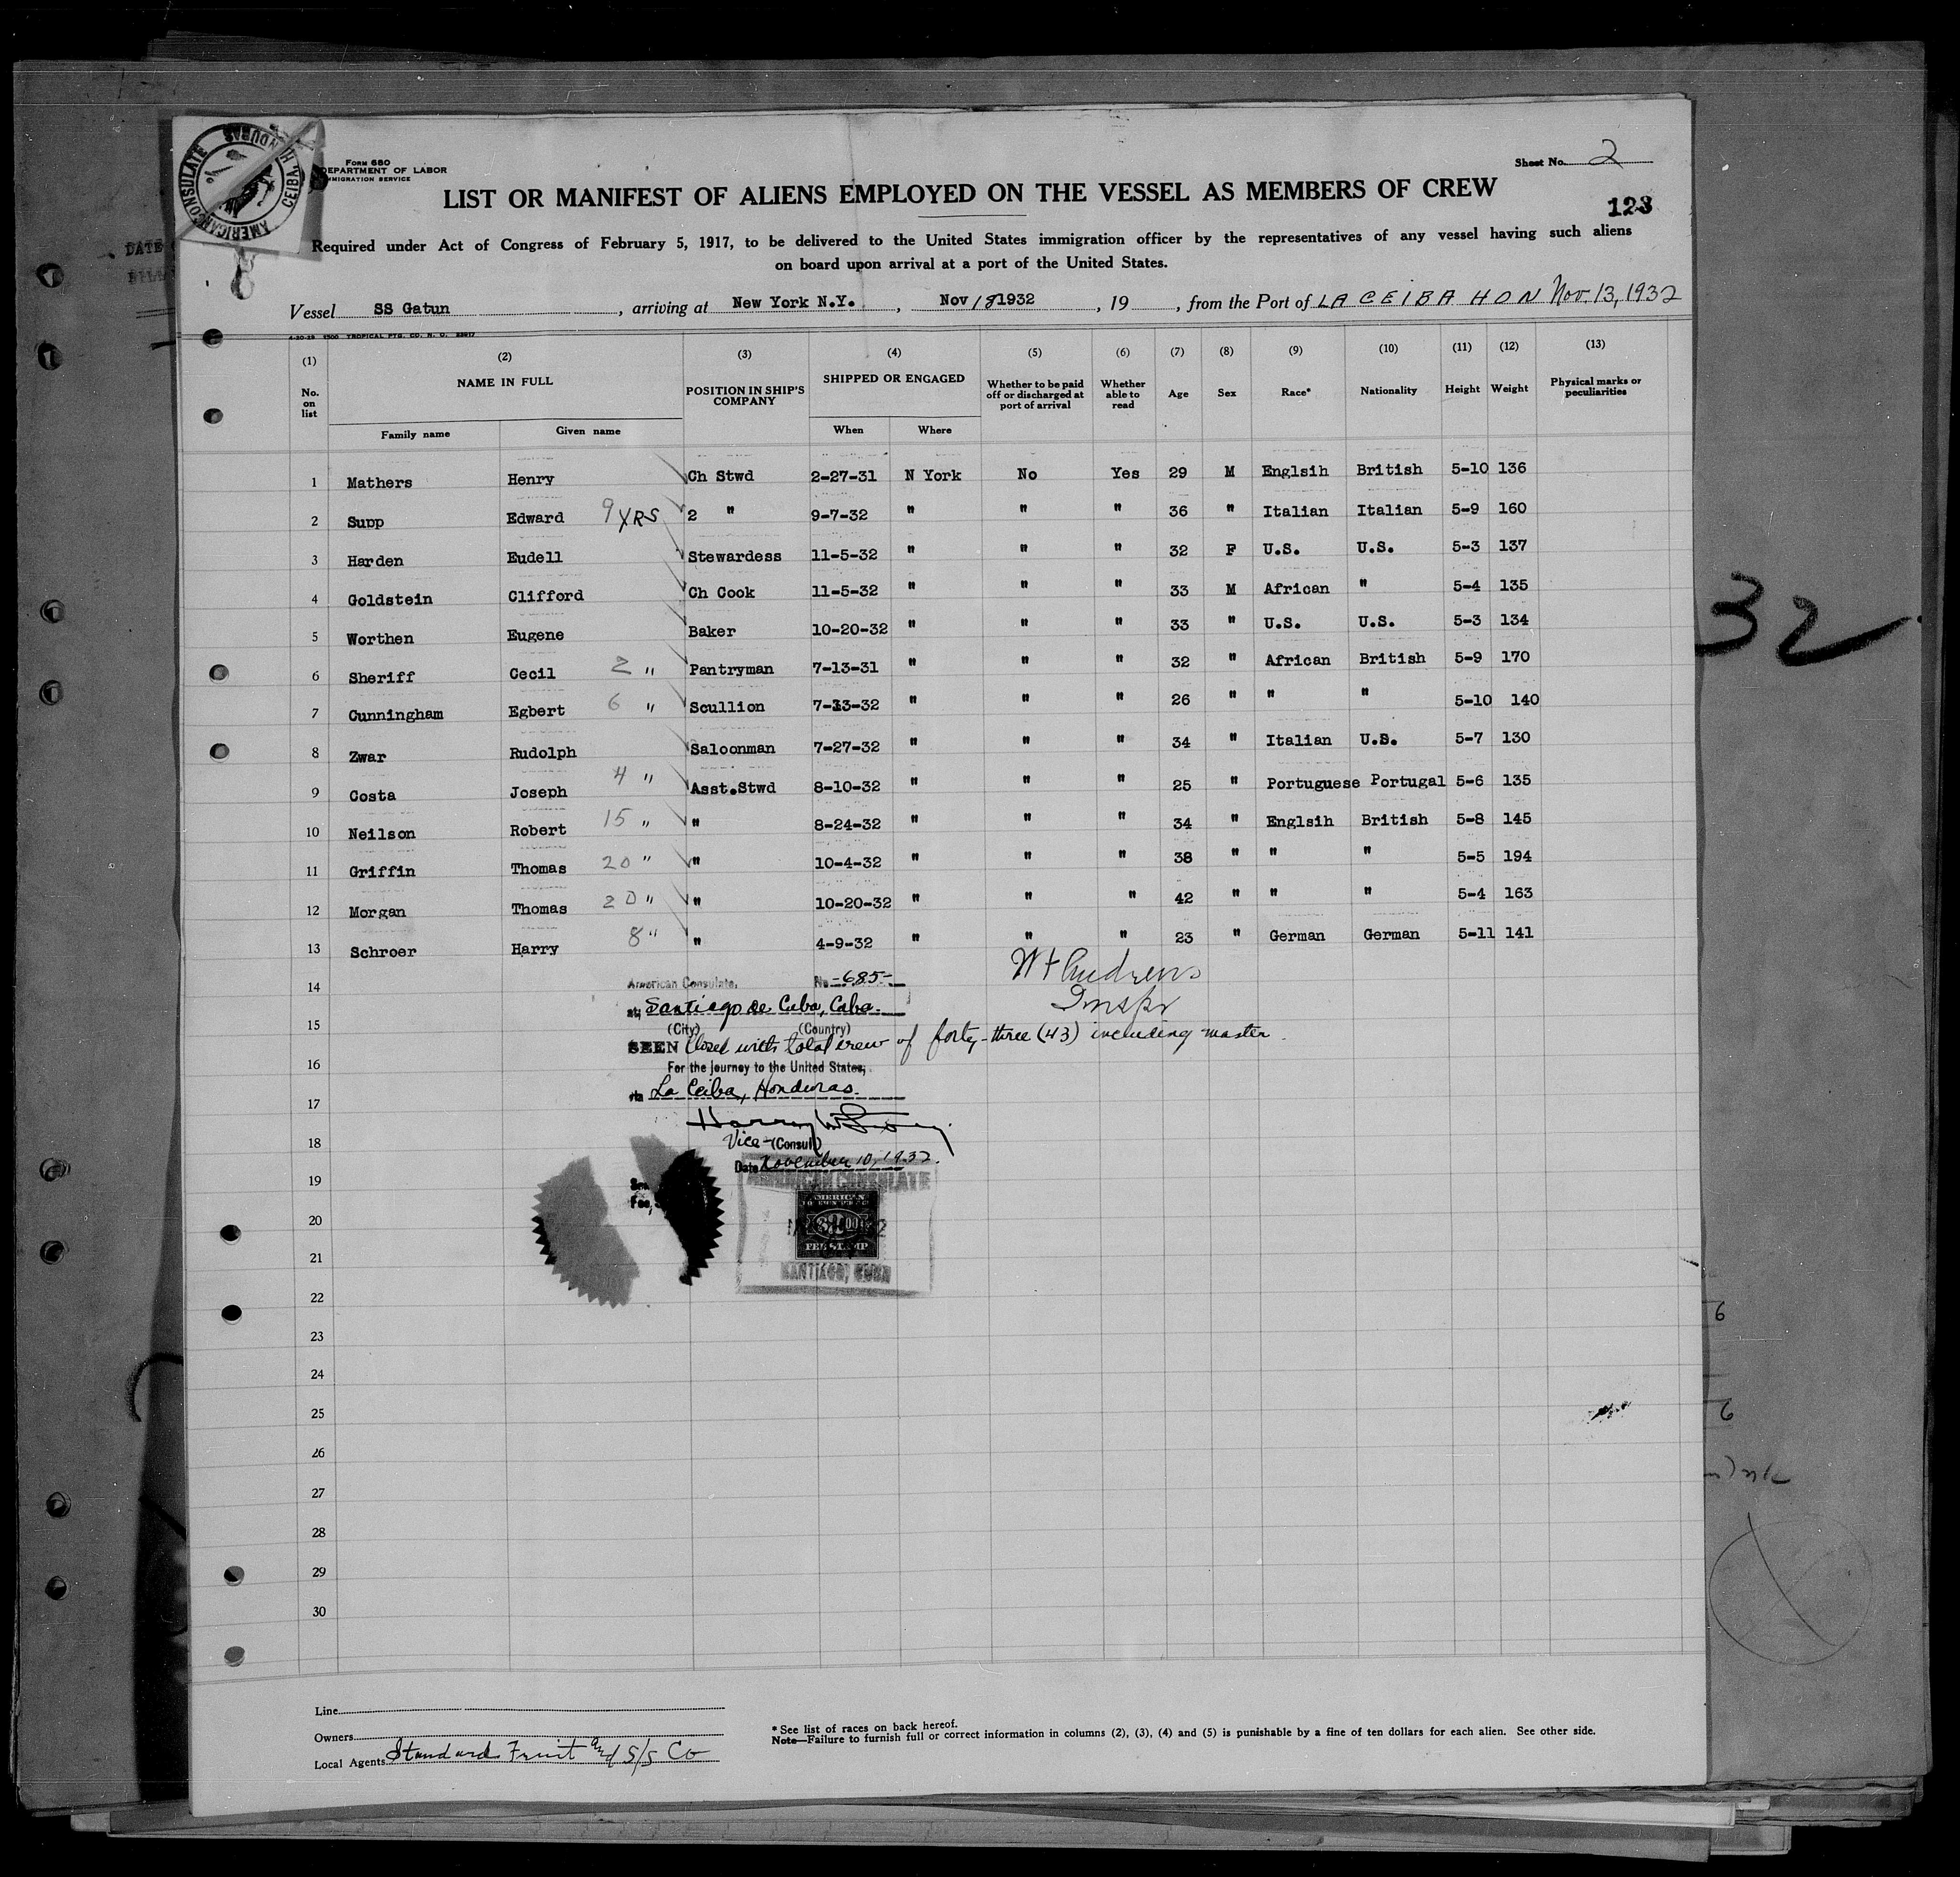 AMERICAN CONSULATE CEIBA, HONDURAS
Form 680
DEPARTMENT OF LABOR
IMMIGRATION SERVICE
Sheet No. 2
LIST OR MANIFEST OF ALIENS EMPLOYED ON THE VESSEL AS MEMBERS OF CREW
123
Required under Act of Congress of February 5, 1917, to be delivered to the United States immigration officer by the representatives of any vessel having such aliens
on board upon arrival at a port of the United States.
Vessel SS Gatun, arriving at New York N.Y., Nov 18 1932, 19, from the Port of LA CEIBA HON Nov. 13, 1932
(1) (2) (3) (4) (5) (6) (7) (8) (9) (10) (11) (12) (13)
No. on list NAME IN FULL POSITION IN SHIP'S COMPANY SHIPPED OR ENGAGED Whether to be paid off or discharged at port of arrival Whether able to read Age Sex Race* Nationality Height Weight Physical marks or peculiarities
Family name Given name When Where
1 Mathers Henry Ch Stwd 2-27-31 N York No Yes 29 M Englsih British 5-10 136
2 Supp Edward 9 YRS 2 " 9-7-32 " " " 36 " Italian Italian 5-9 160
3 Harden Eudell Stewardess 11-5-32 " " " 32 F U.S. U.S. 5-3 137
4 Goldstein Clifford Ch Cook 11-5-32 " " " 33 M African " 5-4 135
5 Worthen Eugene Baker 10-20-32 " " " 33 " U.S. U.S. 5-3 134
6 Sheriff Cecil 2 " Pantryman 7-13-31 " " " 32 " African British 5-9 170
7 Cunningham Egbert 6 " Scullion 7-13-32 " " " 26 " " " 5-10 140
8 Zwar Rudolph Saloonman 7-27-32 " " " 34 " Italian U.S. 5-7 130
9 Costa Joseph 4 " Asst.Stwd 8-10-32 " " " 25 " Portuguese Portugal 5-6 135
10 Neilson Robert 15 " " 8-24-32 " " " 34 " Englsih British 5-8 145
11 Griffin Thomas 20 " " 10-4-32 " " " 38 " " " 5-5 194
12 Morgan Thomas 20 " " 10-20-32 " " " 42 " " " 5-4 163
13 Schroer Harry 8 " " 4-9-32 " " " 23 " German German 5-11 141
14
American Consulate, No. -685-
at Santiago de Cuba, Cuba.
(City) (Country)
Inspr
15
SEEN Closed with total crew of forty-three (43) including master.
16
For the journey to the United States,
via La Ceiba, Honduras.
17
18
Vice-(Consul)
Date November 10, 1932.
19
AMERICAN CONSULATE
AMERICAN
20
FEE STAMP
21
SANTIAGO, CUBA
22
23
24
25
26
27
28
29
30
Line
Owners
Local Agents Standard Fruit and S/S Co
*See list of races on back hereof.
Note—Failure to furnish full or correct information in columns (2), (3), (4) and (5) is punishable by a fine of ten dollars for each alien. See other side.
32
6
6